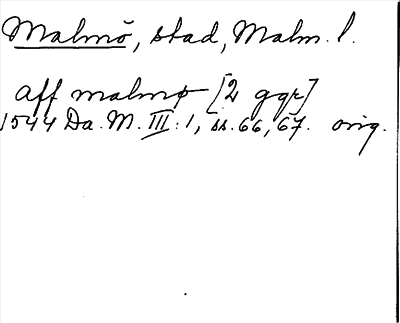 Malmö, stad, Malm. l.
aff malmø [2 ggr]
1544 Da. M. III: 1, ss. 66, 67. orig.